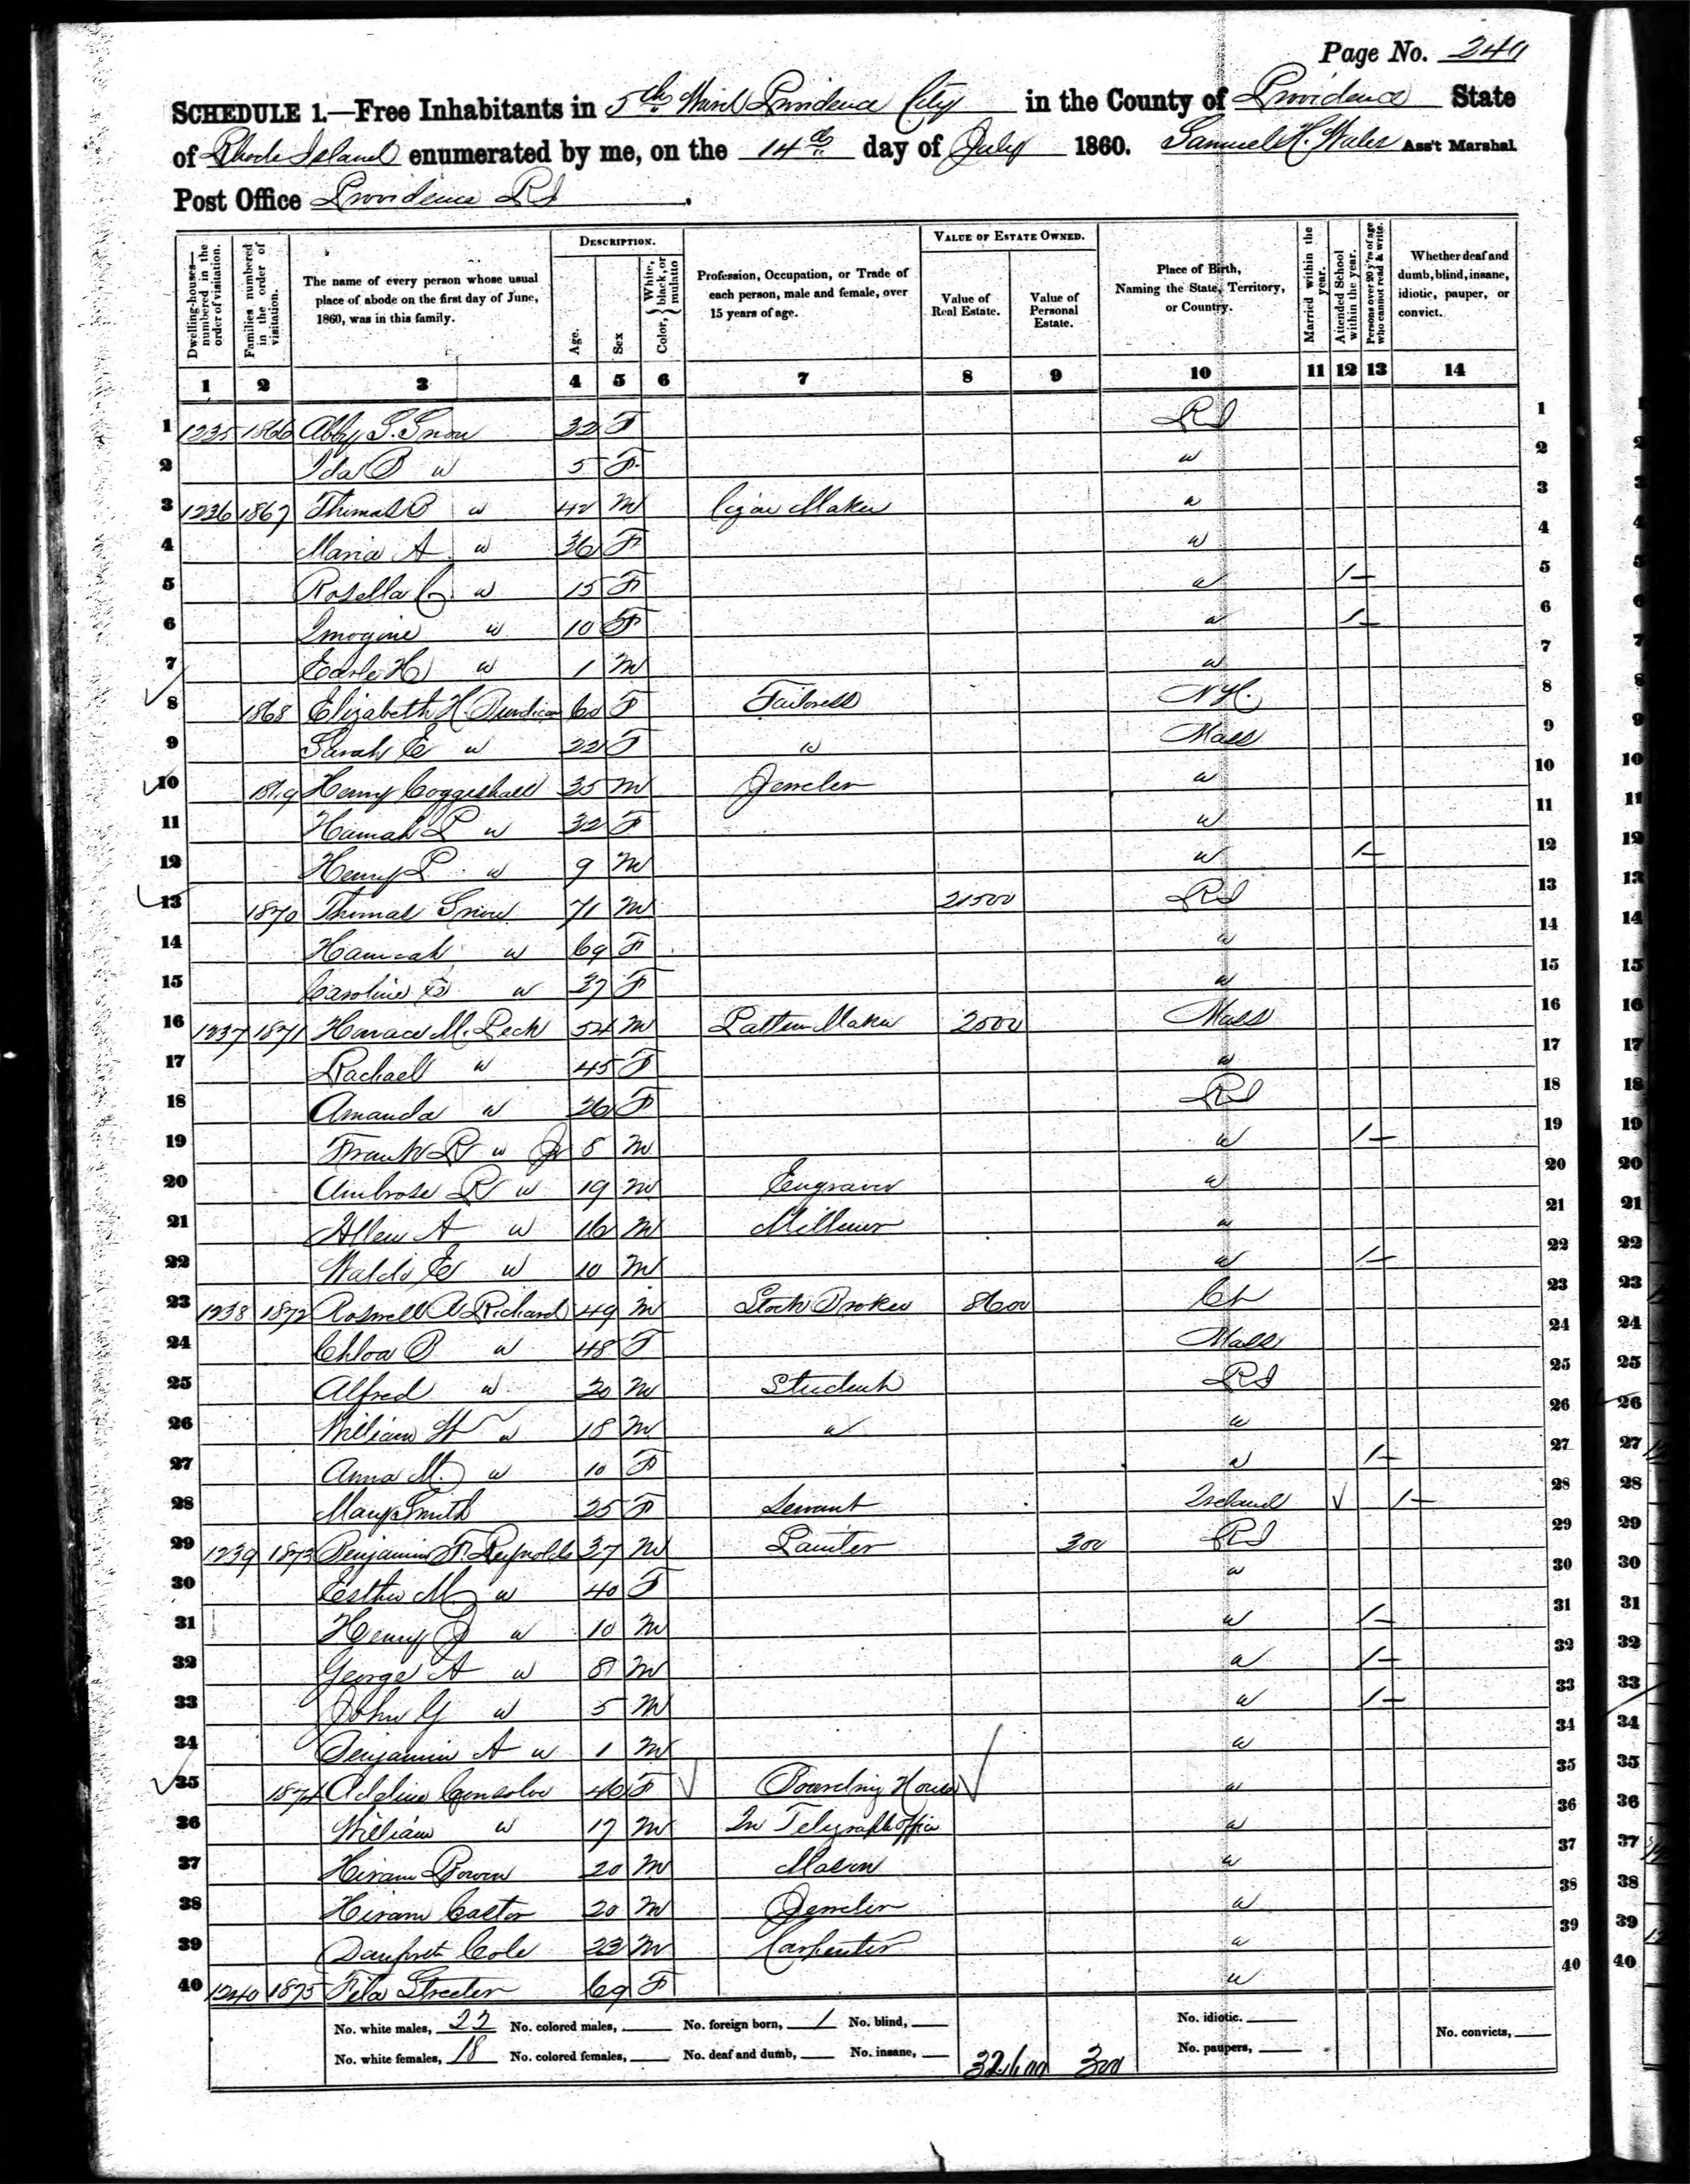 Page No. 241
SCHEDULE 1.—Free Inhabitants in 5th Ward Providence City in the County of Providence State
of Rhode Island enumerated by me, on the 14th day of July 1860. Samuel H. Wales Ass't Marshal
Post Office Providence RI.
Dwelling-houses—numbered in the order of visitation. Families numbered in the order of visitation. The name of every person whose usual place of abode on the first day of June, 1860, was in this family. DESCRIPTION. Age. Sex Color, White, black, or mulatto Profession, Occupation, or Trade of each person, male and female, over 15 years of age. VALUE OF ESTATE OWNED. Value of Real Estate. Value of Personal Estate. Place of Birth, Naming the State, Territory, or Country. Married within the year. Attended School within the year. Persons over 20 y'rs of age who cannot read & write. Whether deaf and dumb, blind, insane, idiotic, pauper, or convict.
1 2 3 4 5 6 7 8 9 10 11 12 13 14
1 1235 1866 Abby S. Snow 32 F RI 1
2 Ida B " 5 F " 2
3 1236 1867 Thomas P " 42 M Cigar Maker " 3
4 Maria A " 36 F " 4
5 Rosella C. " 15 F " 1 5
6 Imogine " 10 F " 1 6
7 Earle H " 1 M " 7
8 1868 Elizabeth H. 60 F Tailoress NH. 8
9 Sarah E " 22 F " Mass 9
10 1869 Henry Coggeshall 35 M Jeweler " 10
11 Hannah L " 32 F " 11
12 Henry L " 9 M " 1 12
13 1870 Thomas Snow 71 M 21500 RI 13
14 Hannah " 69 F " 14
15 Caroline " 37 F " 15
16 1237 1871 Horace M. Peck 54 M Pattern Maker 2500 Mass 16
17 Rachael " 45 F " 17
18 Amanda " 26 F RI 18
19 Frank R " Jr 8 M " 1 19
20 Ambrose R " 19 M Engraver " 20
21 Allen A " 16 M " 21
22 Waldo E " 10 M " 1 22
23 1238 1872 Roswell A Richard 49 M Stock Broker 8600 Ct 23
24 Chloa B " 48 F Mass 24
25 Alfred " 20 M Student RI 25
26 William H " 18 M " " 26
27 Anna M. " 10 F " 1 27
28 Mary Smith 25 F Servant Ireland 1 28
29 1239 1873 Benjamin F. Reynolds 37 M Painter 300 RI 29
30 Esther M " 40 F " 30
31 Henry J " 10 M " 1 31
32 George A " 8 M " 1 32
33 John G " 5 M " 1 33
34 Benjamin A " 1 M " 34
35 1874 Adeline 46 F Boarding House " 35
36 William " 17 M In Telegraph Office " 36
37 Hiram Bowen 20 M Mason " 37
38 Hiram 20 M Jeweler " 38
39 Danforth Cole 23 M Carpenter " 39
40 1240 1875 Streeter 69 F " 40
No. white males, 22 No. colored males, No. foreign born, 1 No. blind, No. idiotic. No. convicts,
No. white females, 18 No. colored females, No. deaf and dumb, No. insane, 32600 300 No. paupers,